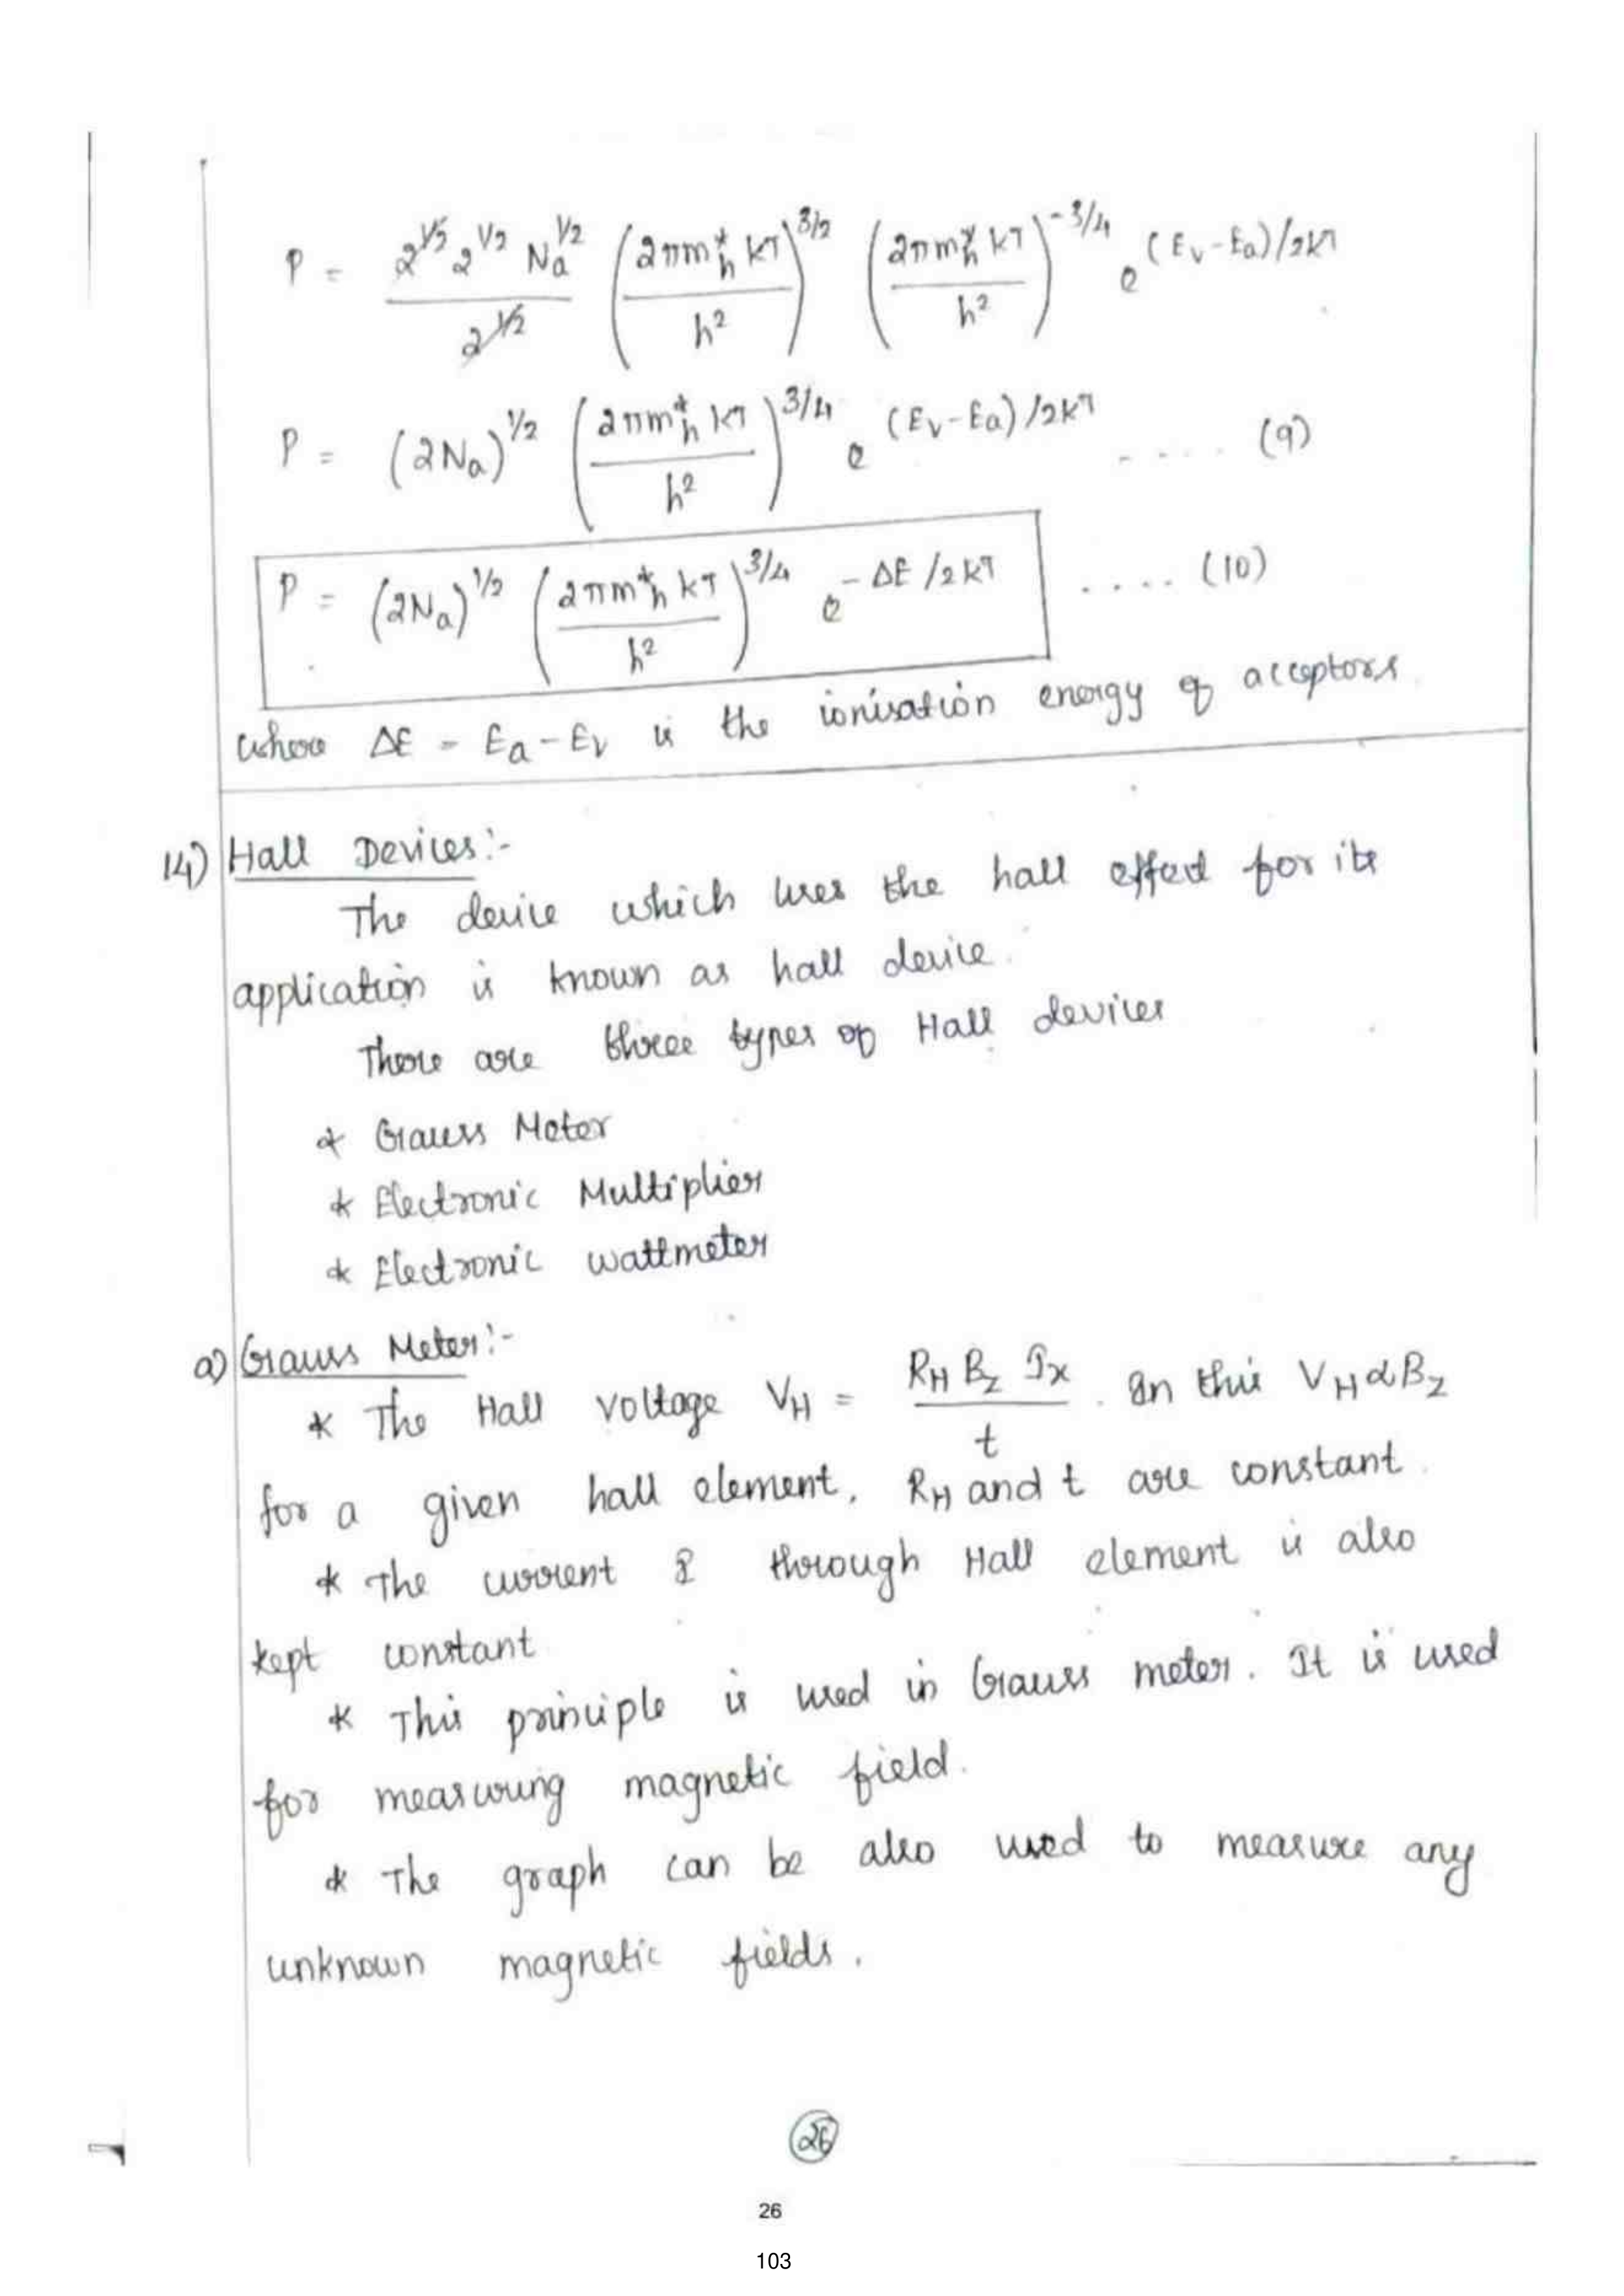 P = 2^{1/2} 2^{1/2} N_a^{1/2} / 2^{1/2} (2πm_h^* kT / h^2)^{3/2} (2πm_h^* kT / h^2)^{-3/4} e^{(E_v - E_a)/2kT}
P = (2N_a)^{1/2} (2πm_h^* kT / h^2)^{3/4} e^{(E_v - E_a)/2kT} ..... (9)
P = (2N_a)^{1/2} (2πm_h^* kT / h^2)^{3/4} e^{-ΔE/2kT} ..... (10)
where ΔE = E_a - E_v is the ionisation energy of acceptors
14) Hall Devices:-
The device which uses the hall effect for its
application is known as hall device.
There are three types of Hall devices
* Gauss Meter
* Electronic Multiplier
* Electronic wattmeter
a) Gauss Meter:-
* The Hall voltage V_H = R_H B_z I_x / t. In this V_H α B_z
for a given hall element. R_H and t are constant.
* The current I through Hall element is also
kept constant
* This principle is used in Gauss meter. It is used
for measuring magnetic field.
* The graph can be also used to measure any
unknown magnetic fields.
26
26
103